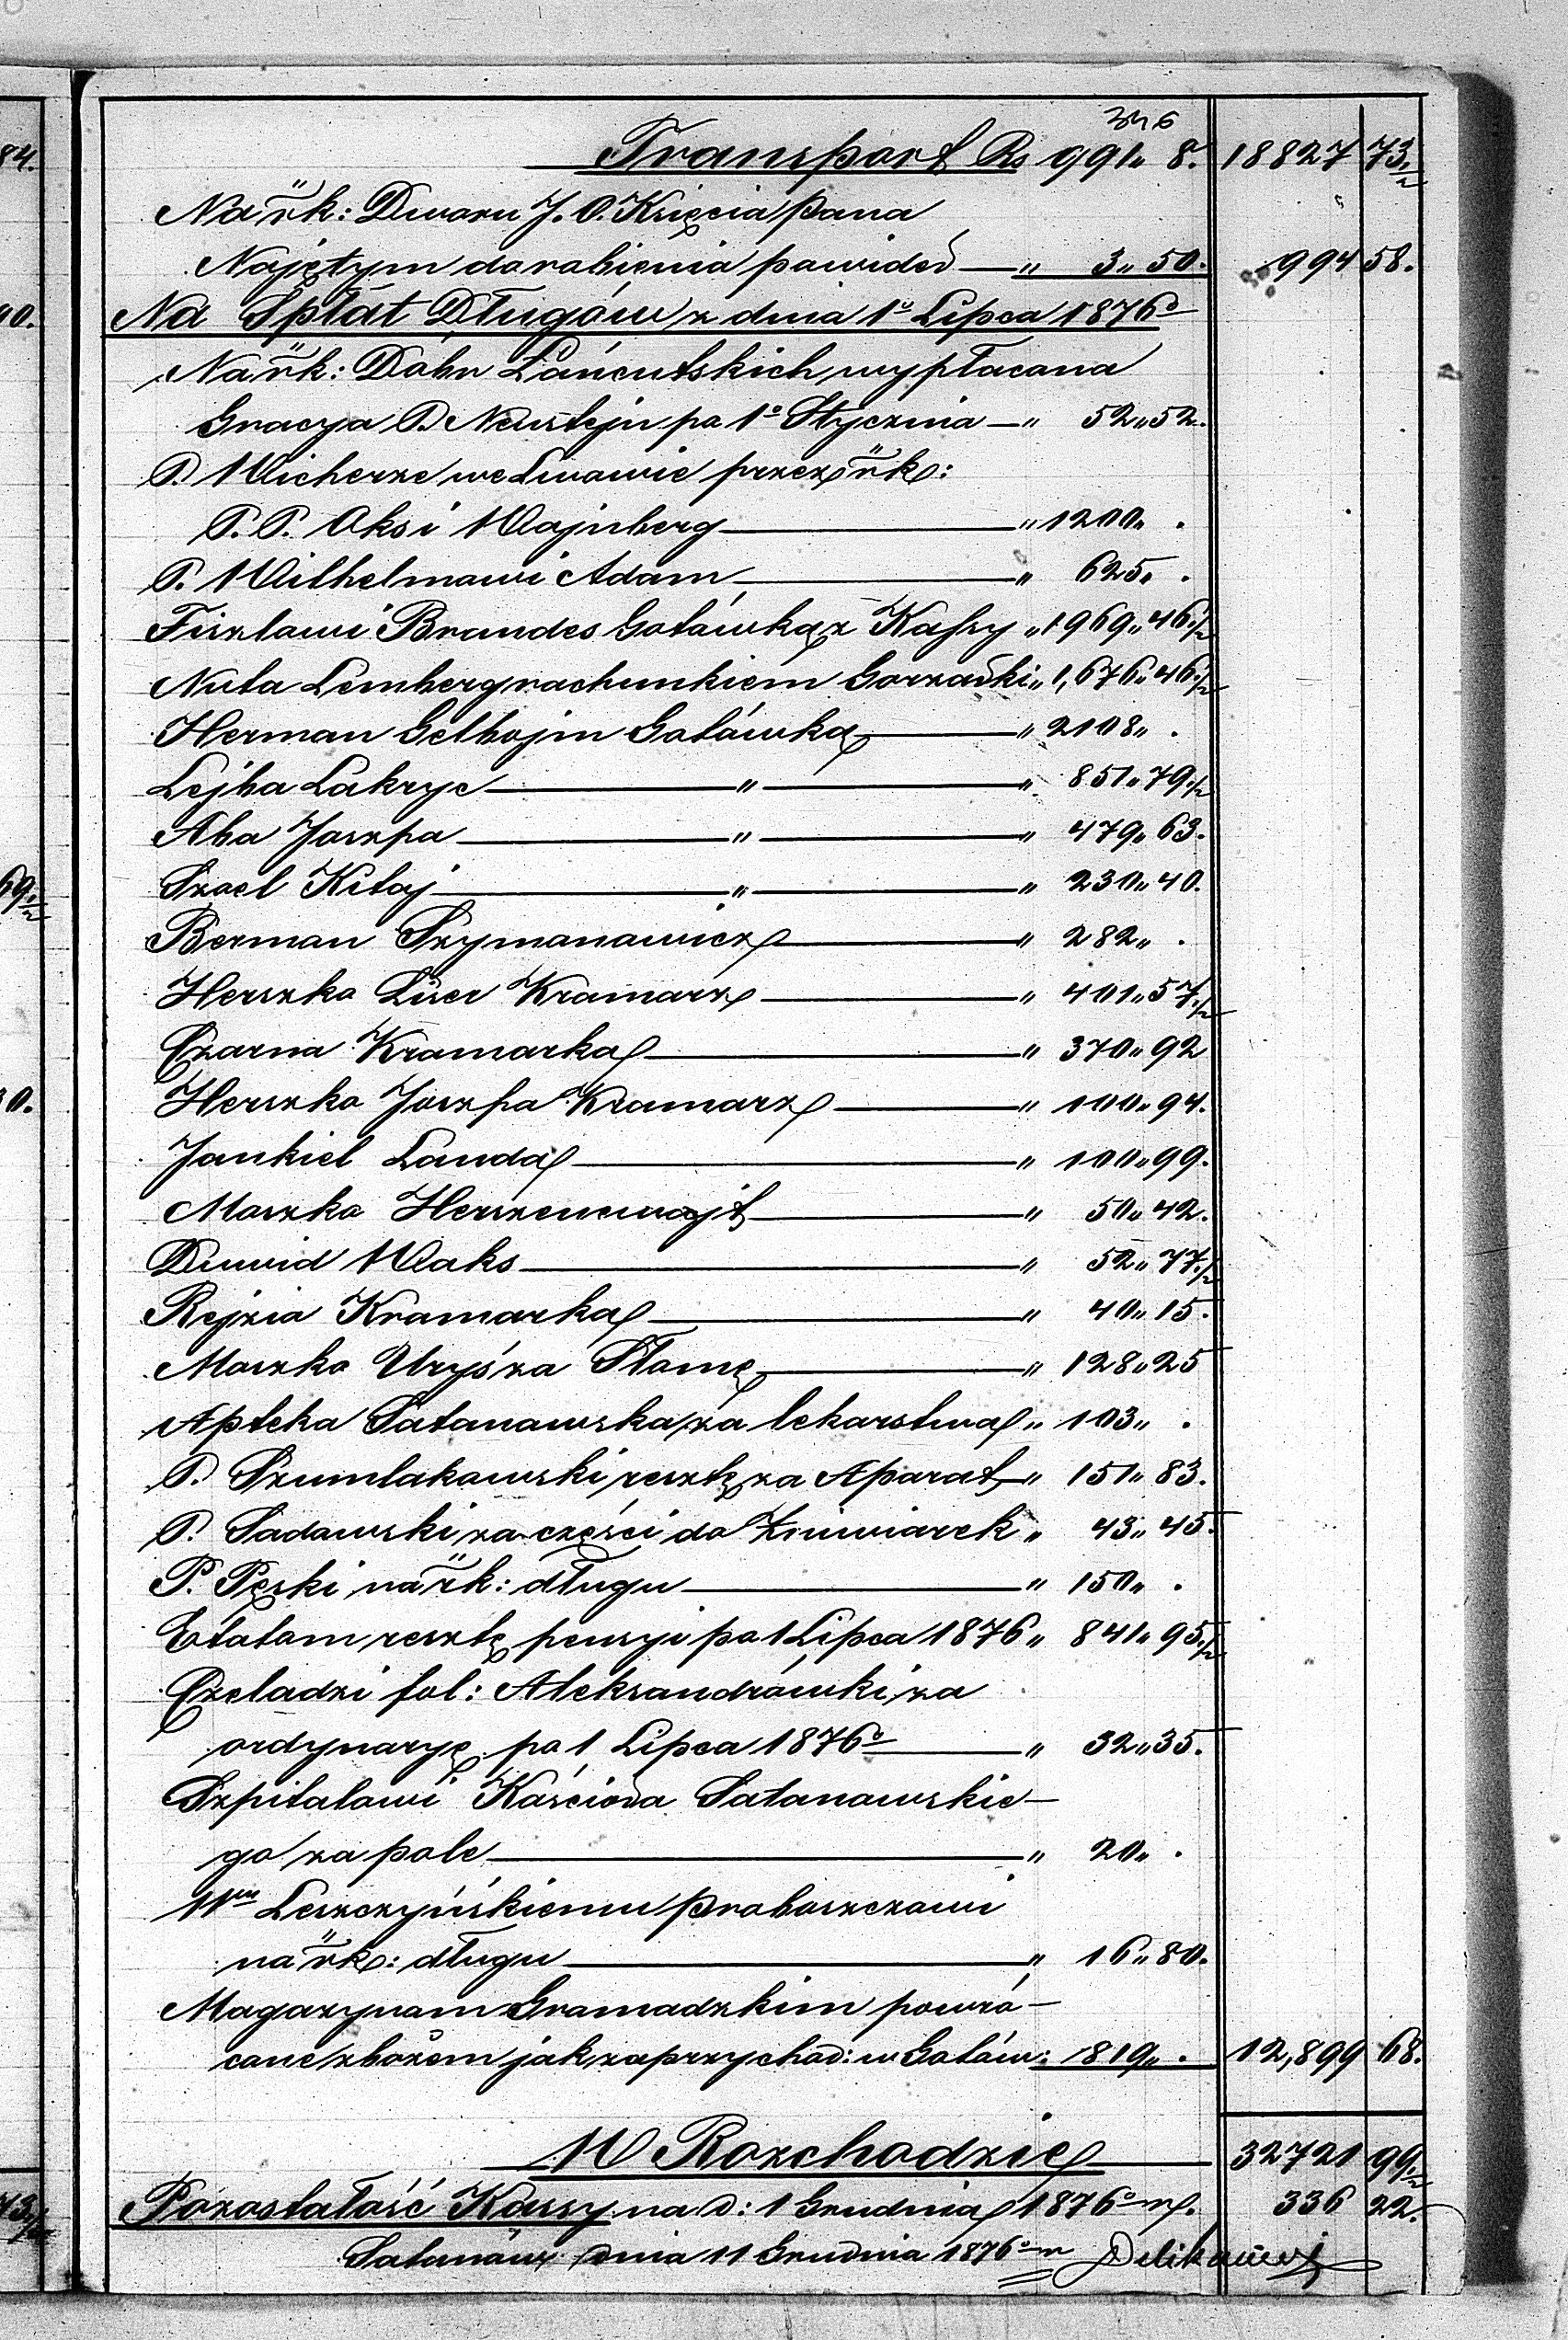 346
Transport Rs 991„ 8. 18827 73.½
Na r̈k: Dworu J. O. Księcia Pana
Najętym do robienia powideł — „ 3„ 50. 994 58.
Na Spłat Długów z dnia 1º Lipca 1876º
Na r̈k: Dóbr Łańcutskich wypłacona
Gracya P. Neustejn po 1º Stycznia — „ 52„ 52.
P. Wicherze we Lwowie przez r̈k:
P.P. Oks i Wajnberg — „ 1200„ .
P. Wilhelmowi Adam — „ 625„ .
Fiszlowi Brandes Gotówką z Kassy „ 1969„ 46.½
Nuta Lemberg rachunkiem Gorzałki „ 1,676„ 46.½
Herman Gelbojm Gotówką — „ 2108„ .
Lejba Lakryc — „ — „ 851„ 79.½
Aba Joszpa — „ — „ 479„ 63.
Szoel Kitaj — „ — „ 230„ 40.
Berman Szymanowicz — „ 282„ .
Herszko Liser Kramarz — „ 401„ 57.½
Czarna Kramarka — „ 370„ 92
Herszko Joszpa Kramarz — „ 100„ 94.
Jankiel Landa — „ 100„ 99.
Moszko Herszencwajt — „ 50„ 42.
Duwid Waks — „ 52„ 77.½
Rejzia Kramarka — „ 40„ 15.
Moszko Uryś za Słomę — „ 128„ 25
Apteka Satanowska za lekarstwa „ 103„ .
P. Szumlakowski resztę za Aparat — „ 151„ 83.
P. Sadowski za części do Żniwiarek „ 43„ 45.
P. Pęski na r̈k: długu — „ 150„ .
Etatom resztę pensyi po 1 Lipca 1876 „ 841„ 95.½
Czeladzi fol: Aleksandrówki za
ordynaryę po 1 Lipca 1876º — „ 32„ 35.
Szpitalowi Kościoła Satanowskie-
go za pole — „ 20„ .
Wmu Leszczyńskiemu Proboszczowi
na r̈k: długu — „ 16„ 80.
Magazynom Gromadzkim powró-
cone zbożem jak zaprzychod: w Gotów: 819„ . 12,899 68.
W Rozchodzie 32721 99.½
Pozostałość Kassy na d: 1 Grudnia 1876º r. 336 22.
Satanów dnia 11 Grudnia 1876º r